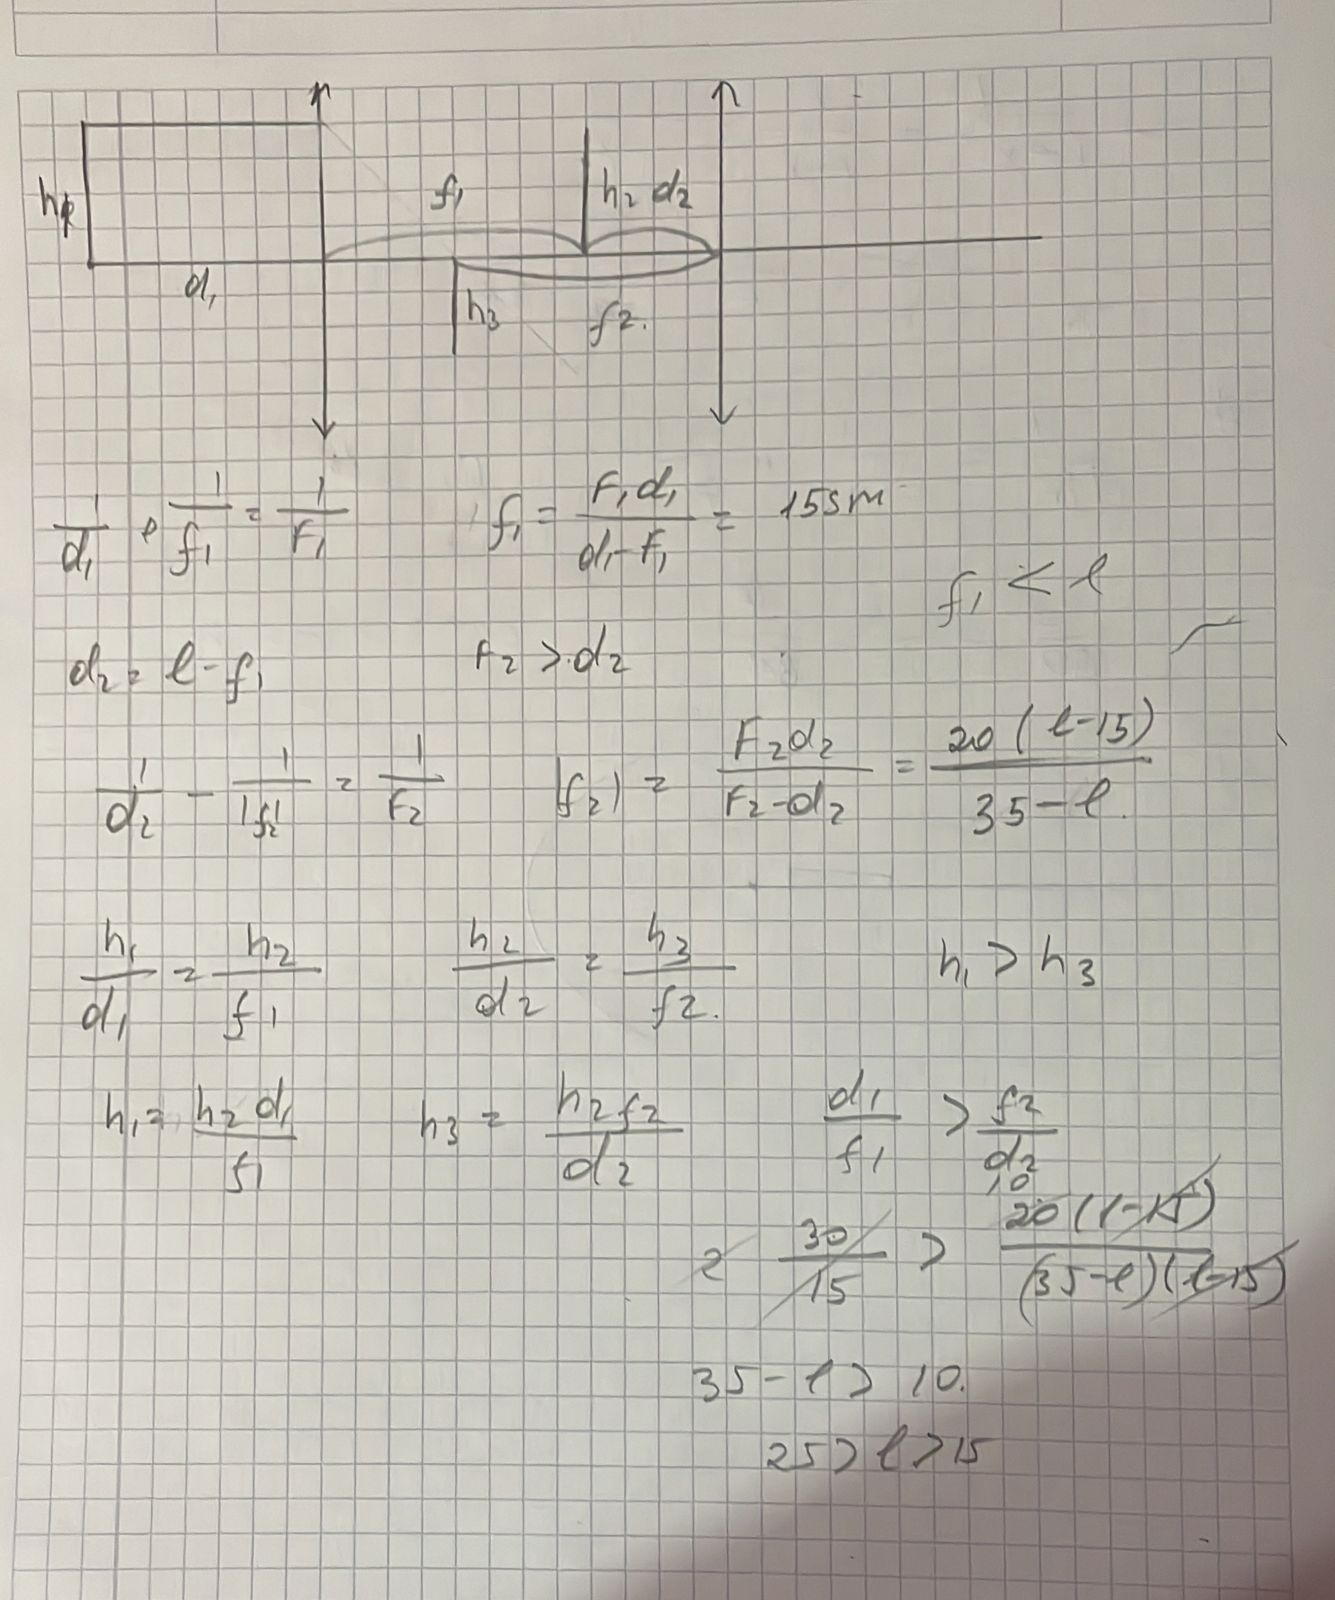 h₁
f₁
h₂ d₂
d₁
h₃
f₂.
1/d₁ + 1/f₁ = 1/F₁ f₁ = F₁d₁/(d₁-F₁) = 15sm
f₁ < ℓ
d₂ = ℓ - f₁ F₂ > d₂
1/d₂ - 1/|f₂| = 1/F₂ |f₂| = F₂d₂/(F₂-d₂) = 20(ℓ-15)/(35-ℓ.)
h₁/d₁ = h₂/f₁ h₂/d₂ = h₃/f₂. h₁ > h₃
h₁ = h₂d₁/f₁ h₃ = h₂f₂/d₂ d₁/f₁ > f₂/d₂
10
2 30/15 > 20(ℓ-15)/(35-ℓ)(ℓ-15)
35-ℓ > 10.
25 > ℓ > 15